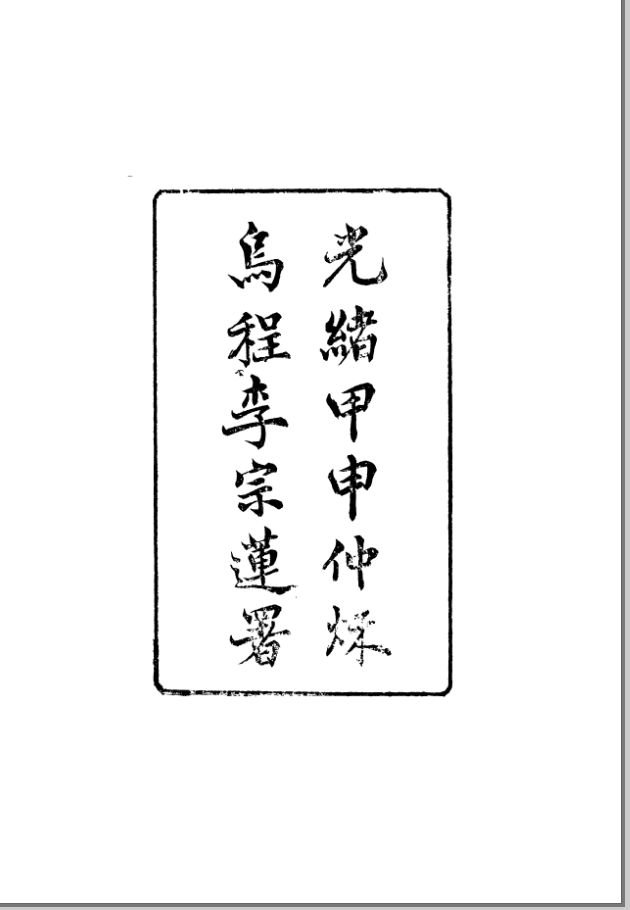 光緒甲申仲秌
烏程李宗蓮署